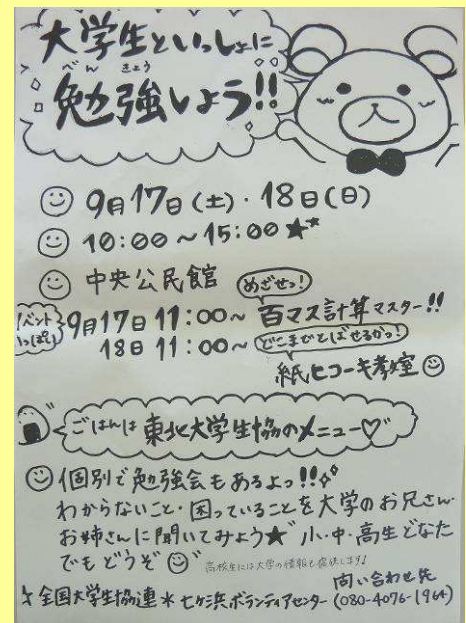 大学生といっしょに
べんきょう
勉強しよう!!
9月17日(土)・18日(日)
10:00~15:00★*
中央公民館
めざせっ!
イベント
いっぱい
9月17日 11:00~ 百マス計算マスター!!
どこまでとばせるかっ!
18日 11:00~
紙ヒコーキ教室
ごはんは東北大学生協のメニュー♡
個別で勉強会もあるよっ!!
わからないこと・困っていることを大学のお兄さん・
お姉さんに聞いてみよう★ 小・中・高生どなた
でもどうぞ
高校生には大学の情報も提供します!
問い合わせ先
全国大学生協連*七ヶ浜ボランティアセンター(080-4076-1964)